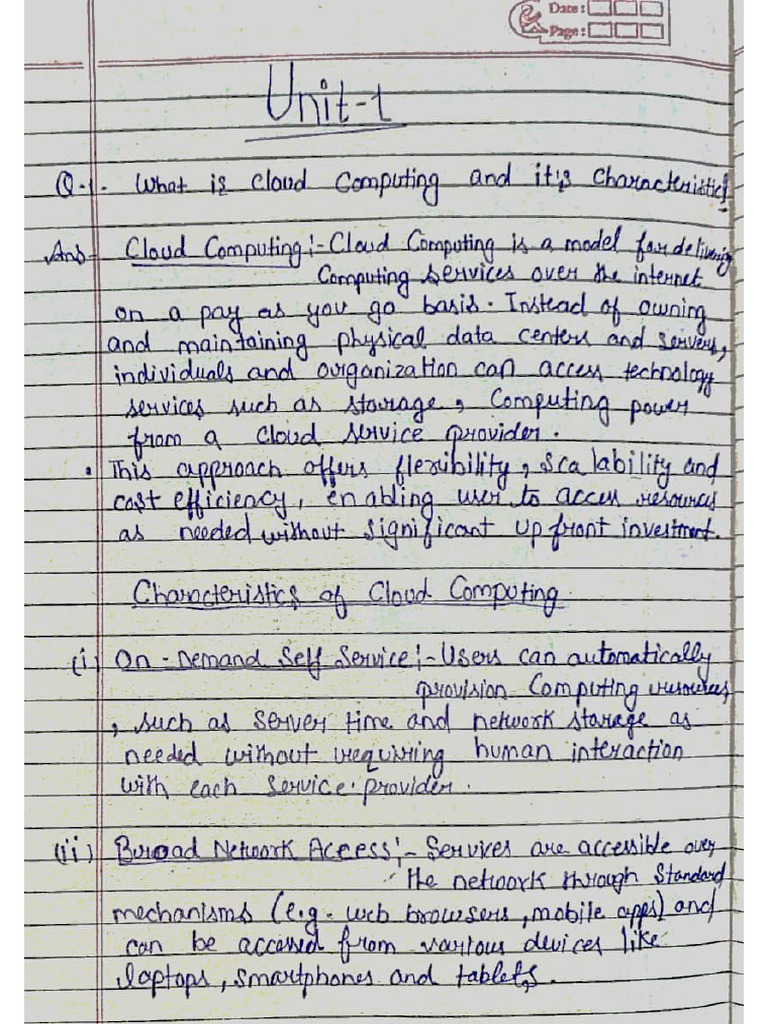 Date :
Page :
Unit-1
Q-1. What is Cloud Computing and it's Characteristics
Ans Cloud Computing :- Cloud Computing is a model for delivering
Computing services over the internet
on a pay as you go basis. Instead of owning
and maintaining physical data centers and servers,
individuals and organization can access technology
services such as storage, Computing power
from a Cloud service provider.
• This approach offers flexibility, scalability and
cost efficiency, enabling user to access resources
as needed without significant up front investment.
Characteristics of Cloud Computing
(i) On-Demand Self Service :- Users can automatically
provision Computing resources
, such as server time and network storage as
needed without requiring human interaction
with each service provider.
(ii) Broad Network Access :- Services are accessible over
the network through Standard
mechanisms (e.g. web browsers, mobile apps) and
can be accessed from various devices like
laptops, smartphones and tablets.